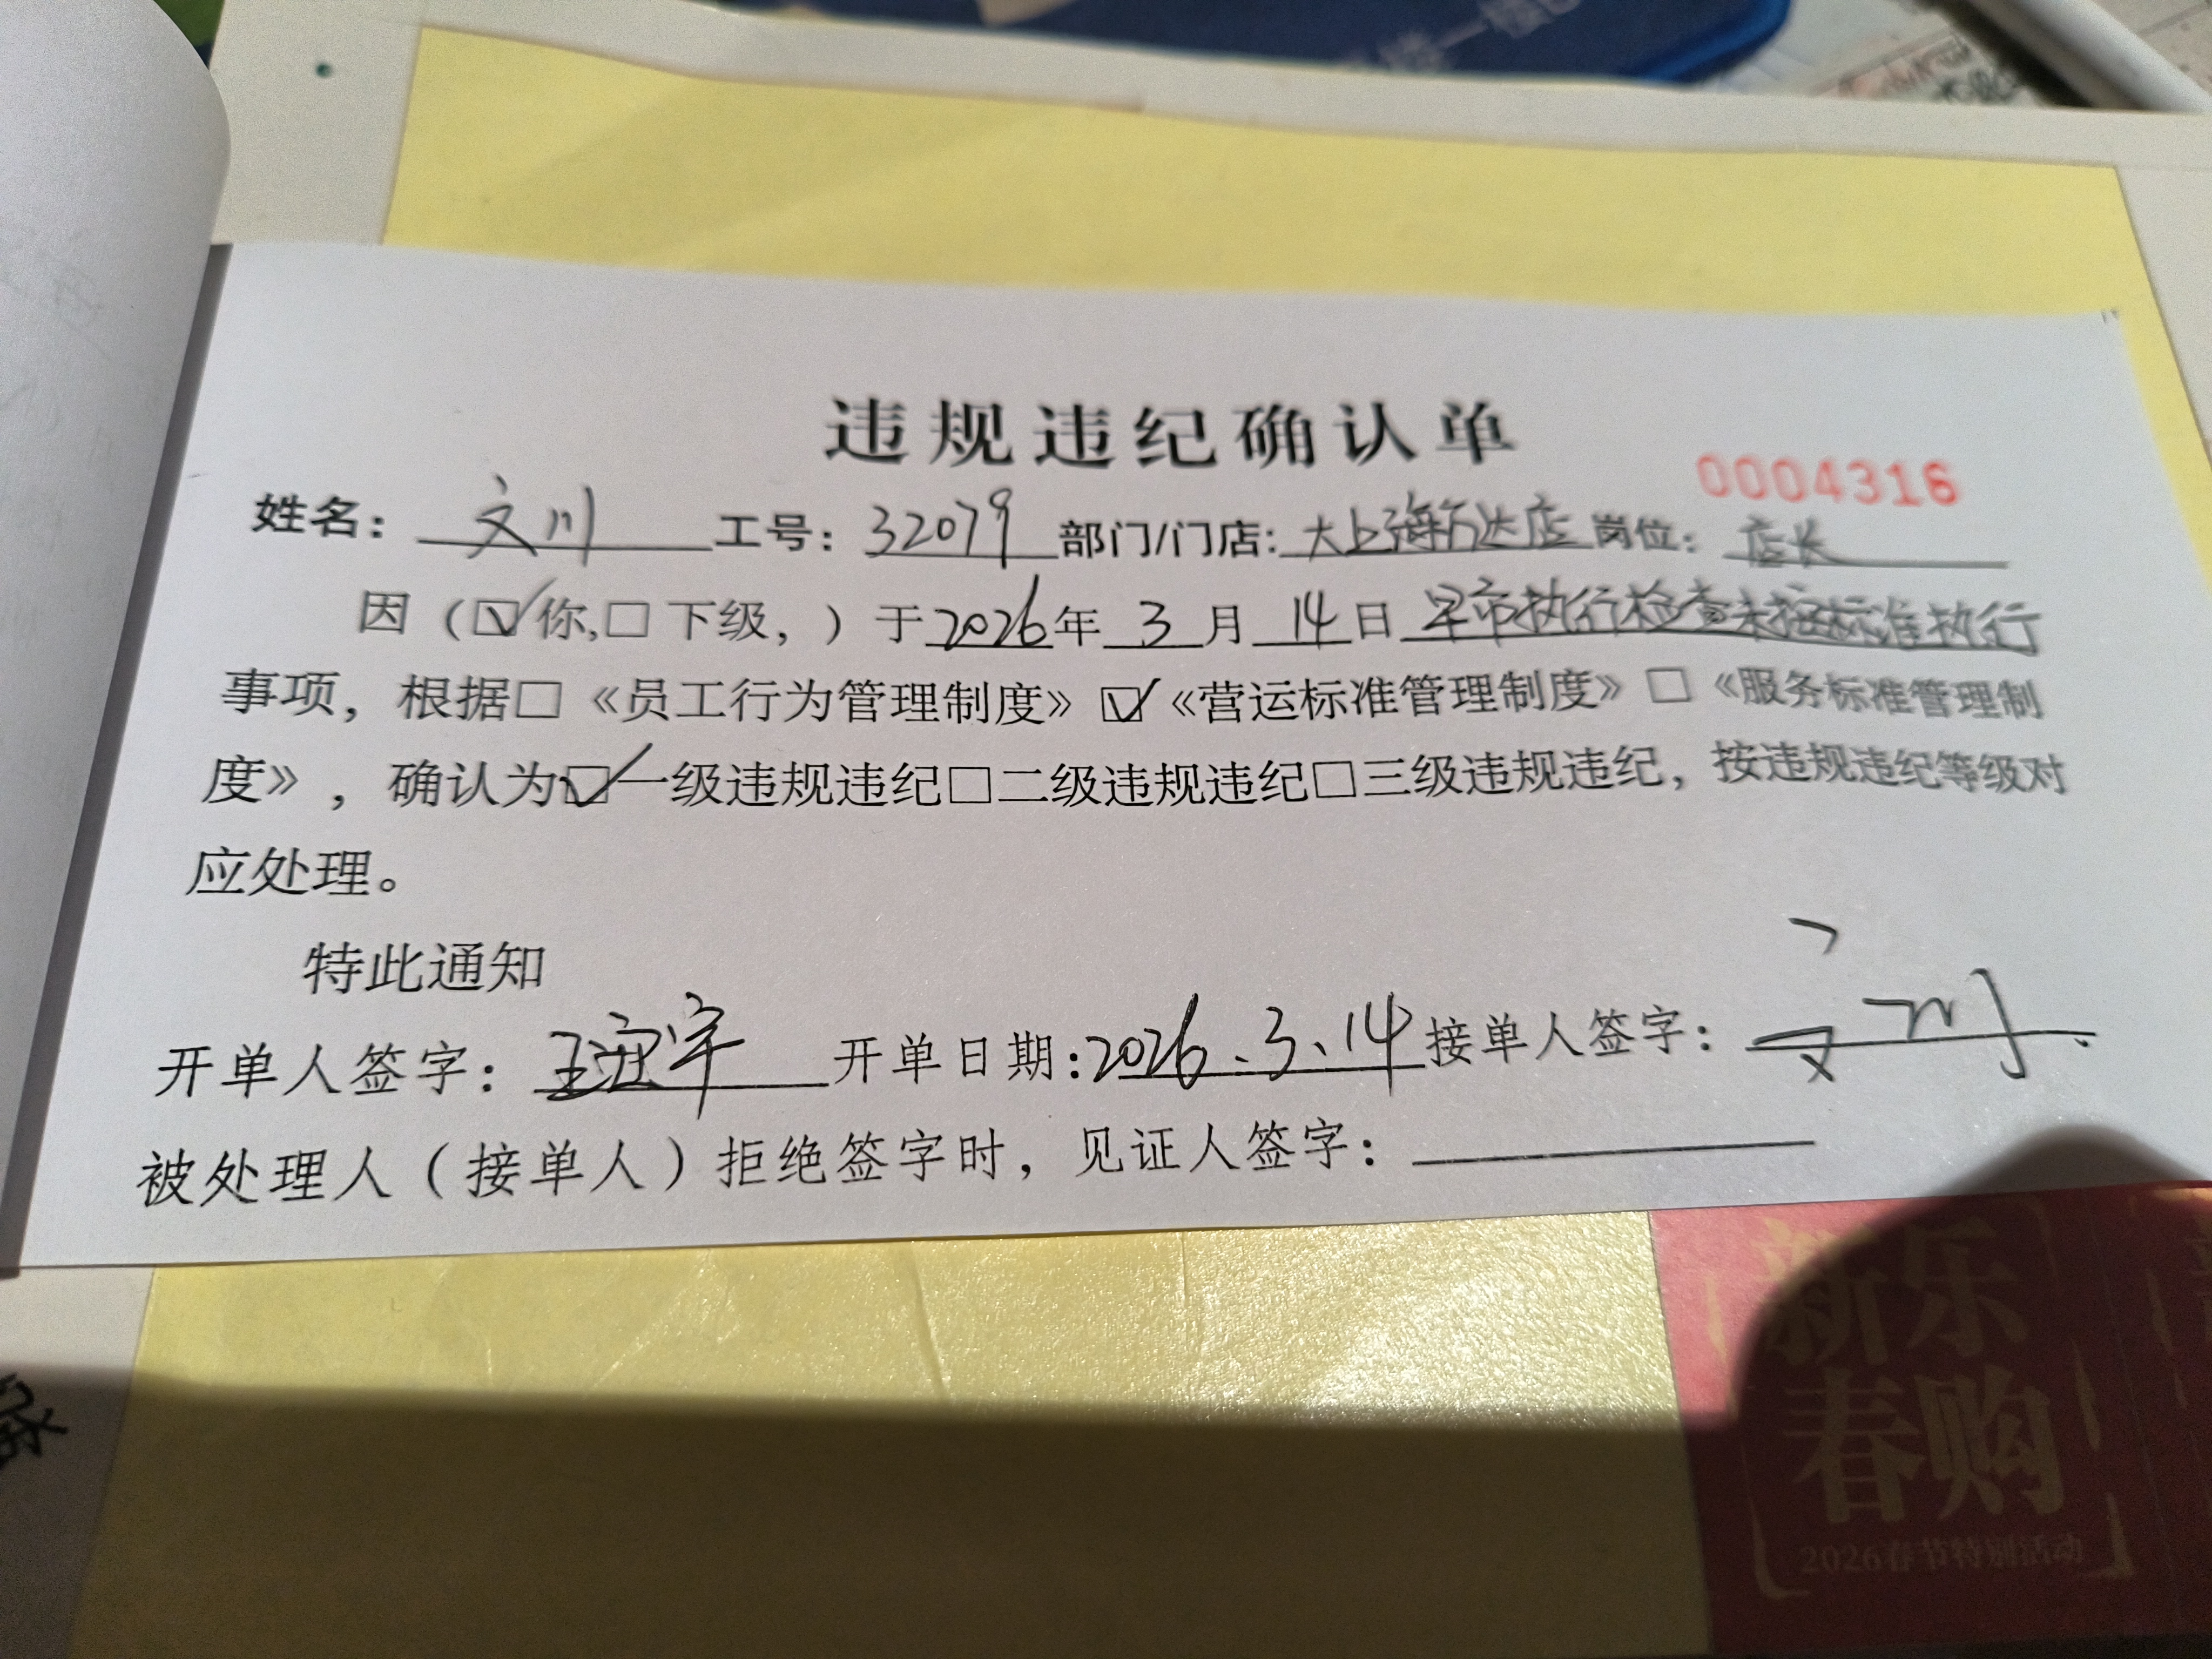 违规违纪确认单
0004316
姓名：文川 工号：32079 部门/门店：大上海万达店 岗位：店长
因（☑你,□下级，）于2026年3月14日早市执行检查未按标准执行
事项，根据□《员工行为管理制度》☑《营运标准管理制度》□《服务标准管理制
度》，确认为☑一级违规违纪□二级违规违纪□三级违规违纪，按违规违纪等级对
应处理。
特此通知
开单人签字：王 宇 开单日期：2026.3.14 接单人签字：文川
被处理人（接单人）拒绝签字时，见证人签字：
新乐
春购
2026春节特别活动